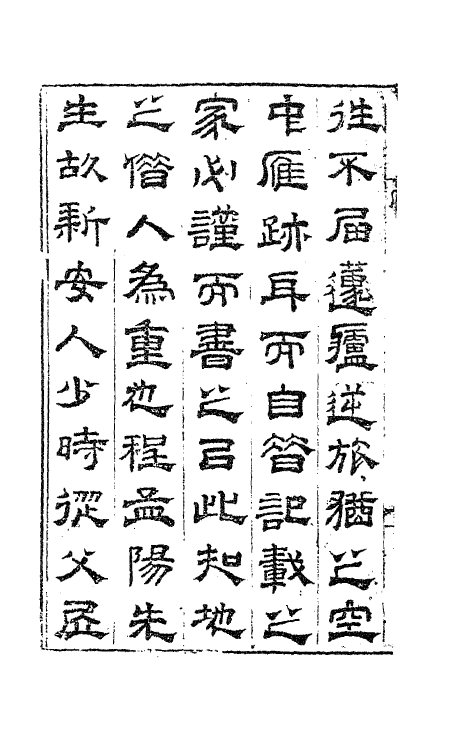 往不屆蘧廬逆旅猶之空
中雁跡耳而自昔記載之
家必謹而書之㠯此知地
之借人為重也程孟陽先
生故新安人少時從父居